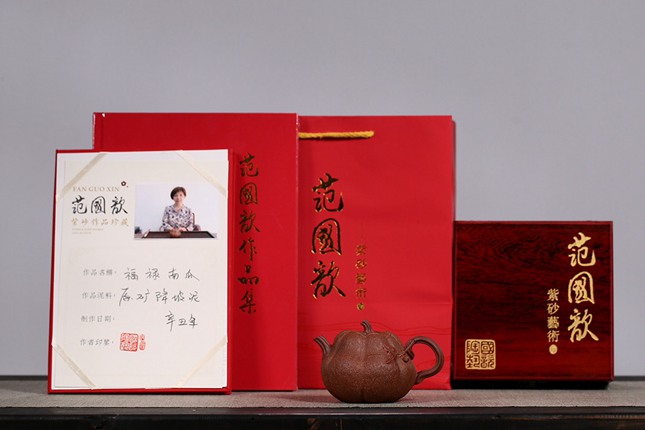 FAN GUO XIN
范國歆
紫砂作品珍藏
作品名稱：福禄南瓜
作品泥料：原矿降坡泥
制作日期：辛丑年
作者印鉴：
范國歆作品集
范國歆
紫砂藝術
范國歆
紫砂藝術